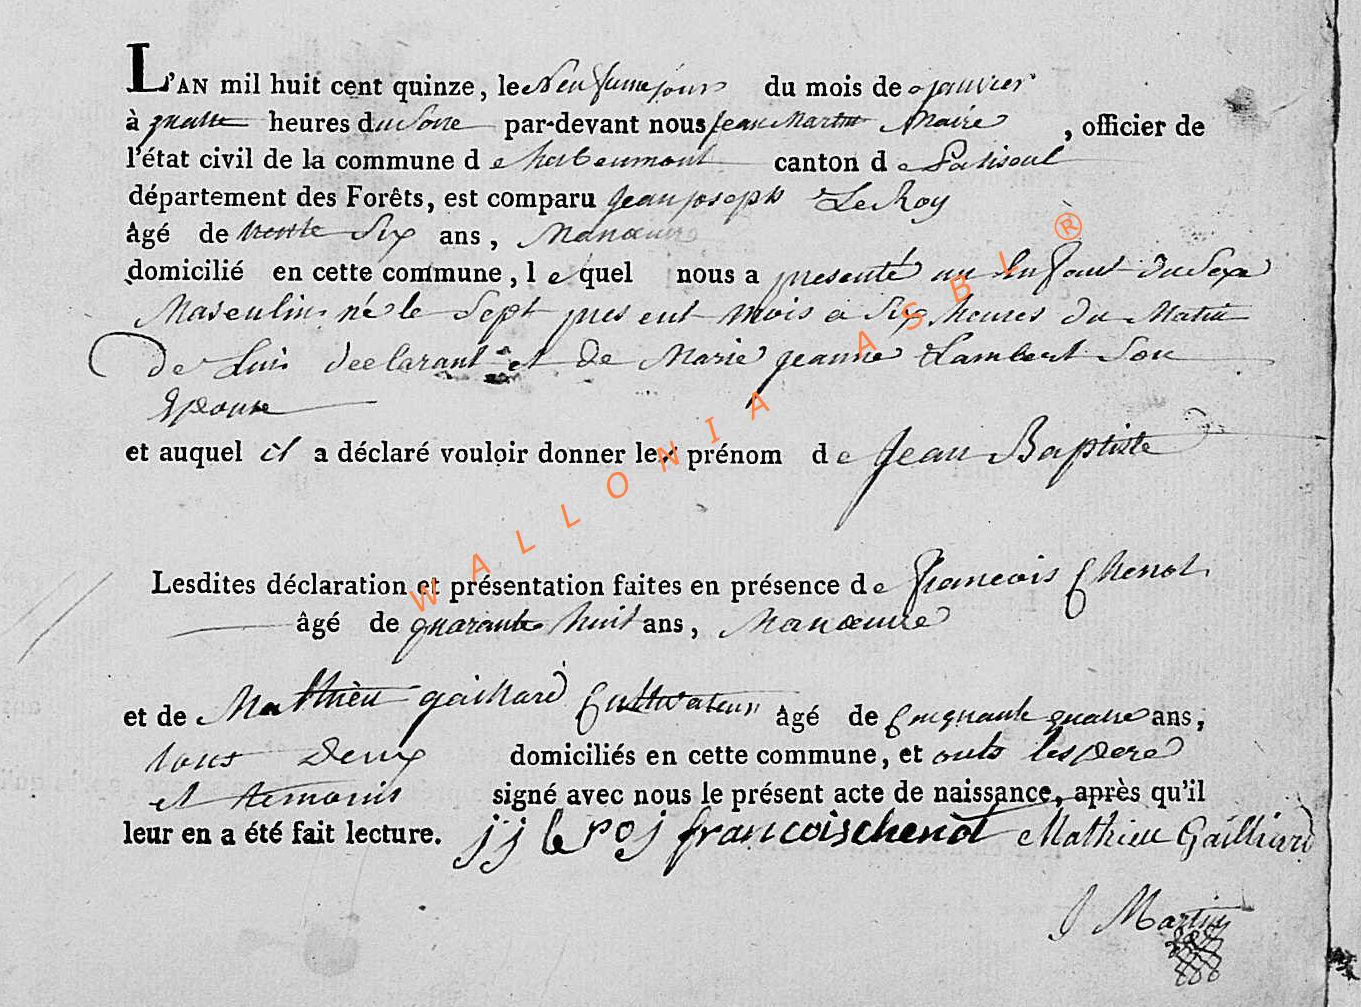 L'AN mil huit cent quinze, le Neufieme jour du mois de janvier
à quatre heures du Soire par-devant nous jean Martin Maire , officier de
l'état civil de la commune de canton de
département des Forêts, est comparu jean joseph Le Roy
âgé de trente Six ans, Manœuvre
domicilié en cette commune, lequel nous a presenté un Enfant du Sexe
Masculin né le Sept present mois a Six heures du Matin
de Lui declarant et de Marie jeanne Lambert Son
Epouse
et auquel il a déclaré vouloir donner les prénom de Jean Baptiste
Lesdites déclaration et présentation faites en présence de francois Chenot
âgé de quarante huit ans, Manœuvre
et de Mathieu gaillard Cultivateur âgé de Cinquante quatre ans,
tous deux domiciliés en cette commune, et onts les pere
et temoins signé avec nous le présent acte de naissance, après qu'il
leur en a été fait lecture. j j le roj francois chenot Mathieu Gailliard
J Martin
WALLONIA ASBL ®